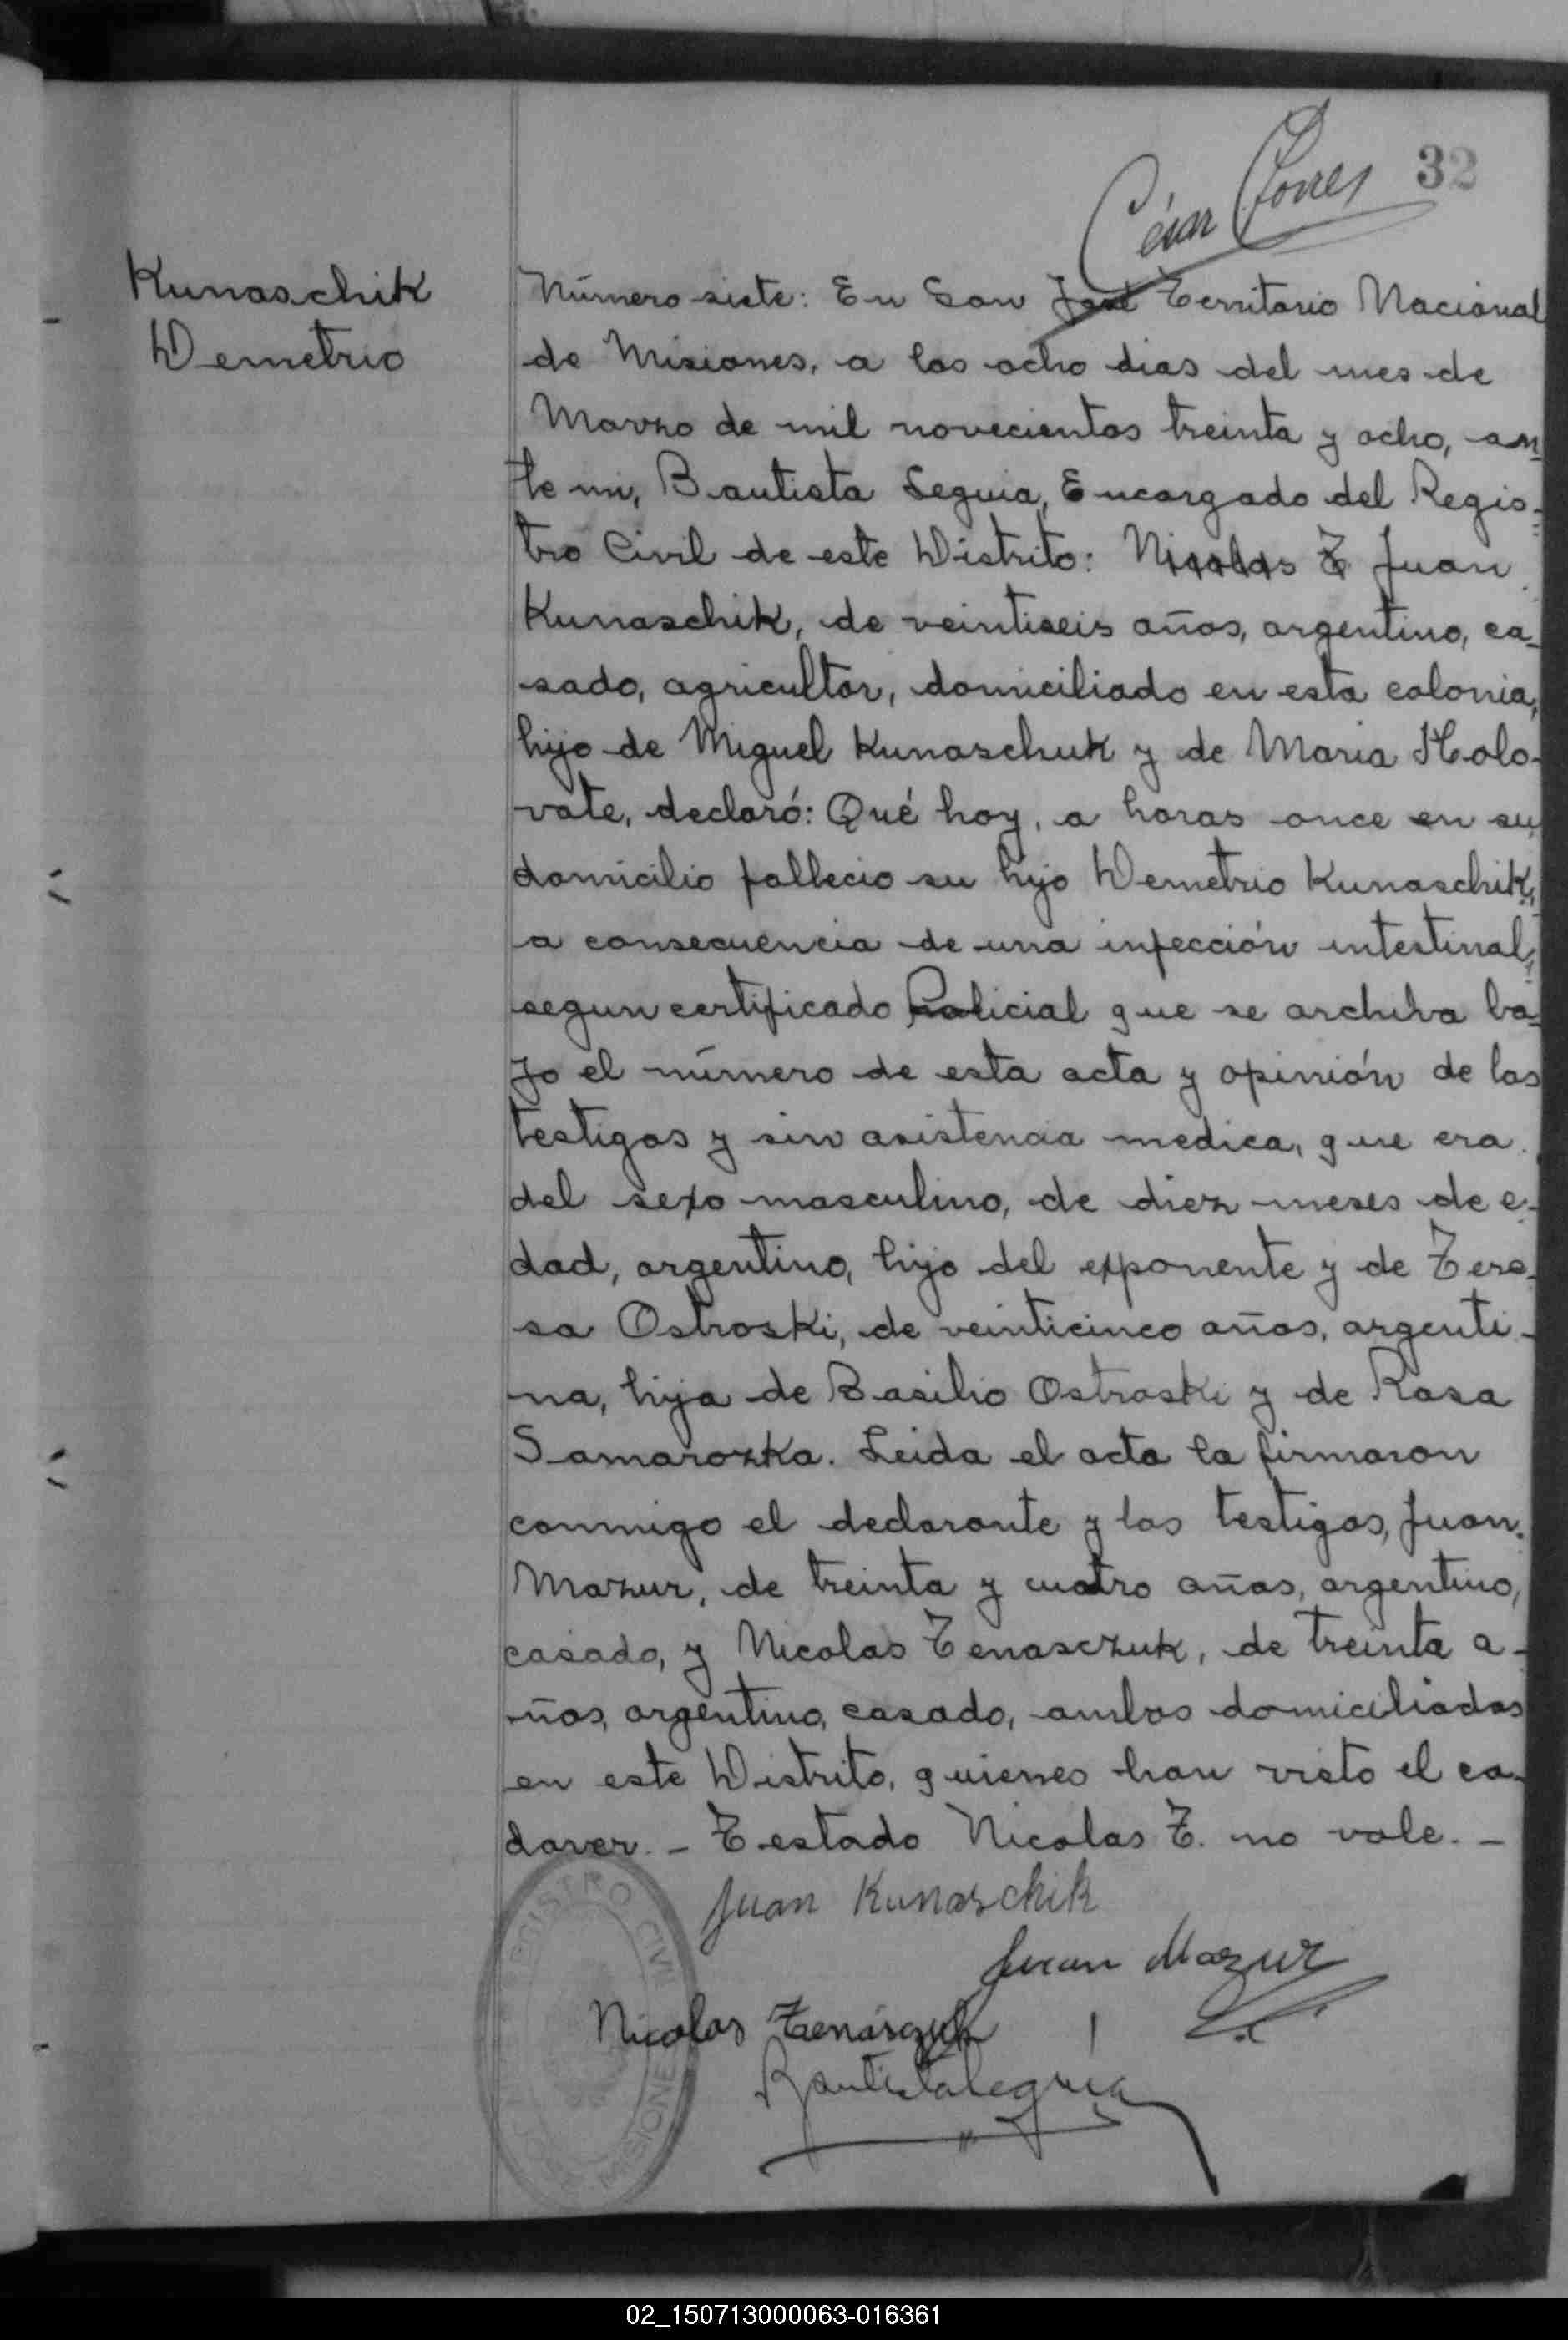 César Torres
32
Kunaschik
Demetrio
Número siete: En San José Territorio Nacional
de Misiones, a los ocho dias del mes de
Marzo de mil novecientos treinta y ocho, an-
te mi, Bautista Leguia, Encargado del Regis-
tro Civil de este Distrito: Nicolas T Juan
Kunaschik, de veintiseis años, argentino, ca-
sado, agricultor, domiciliado en esta colonia,
hijo de Miguel Kunaschuk y de Maria Holo-
vate, declaró: Qué hoy, a horas once en su
domicilio fallecio su hijo Demetrio Kunaschik,
a consecuencia de una infección intestinal,
segun certificado Policial que se archiva ba-
jo el número de esta acta y opinión de los
testigos y sin asistencia medica, que era
del sexo masculino, de diez meses de e-
dad, argentino, hijo del exponente y de Tere-
sa Ostroski, de veinticinco años, argenti-
na, hija de Basilio Ostroski y de Rosa
Samarozka. Leida el acta la firmaron
conmigo el declarante y los testigos, Juan
Mazur, de treinta y cuatro años, argentino,
casado, y Nicolas Tenasczuk, de treinta a-
ños, argentino, casado, ambos domiciliados
en este Distrito, quienes han visto el ca-
daver. - Testado Nicolas T. no vale. -
Juan Kunaschik
Juan Mazur
Nicolas Tenasczuk
Bautista Leguia
REGISTRO CIVIL
MISIONES
02_150713000063-016361